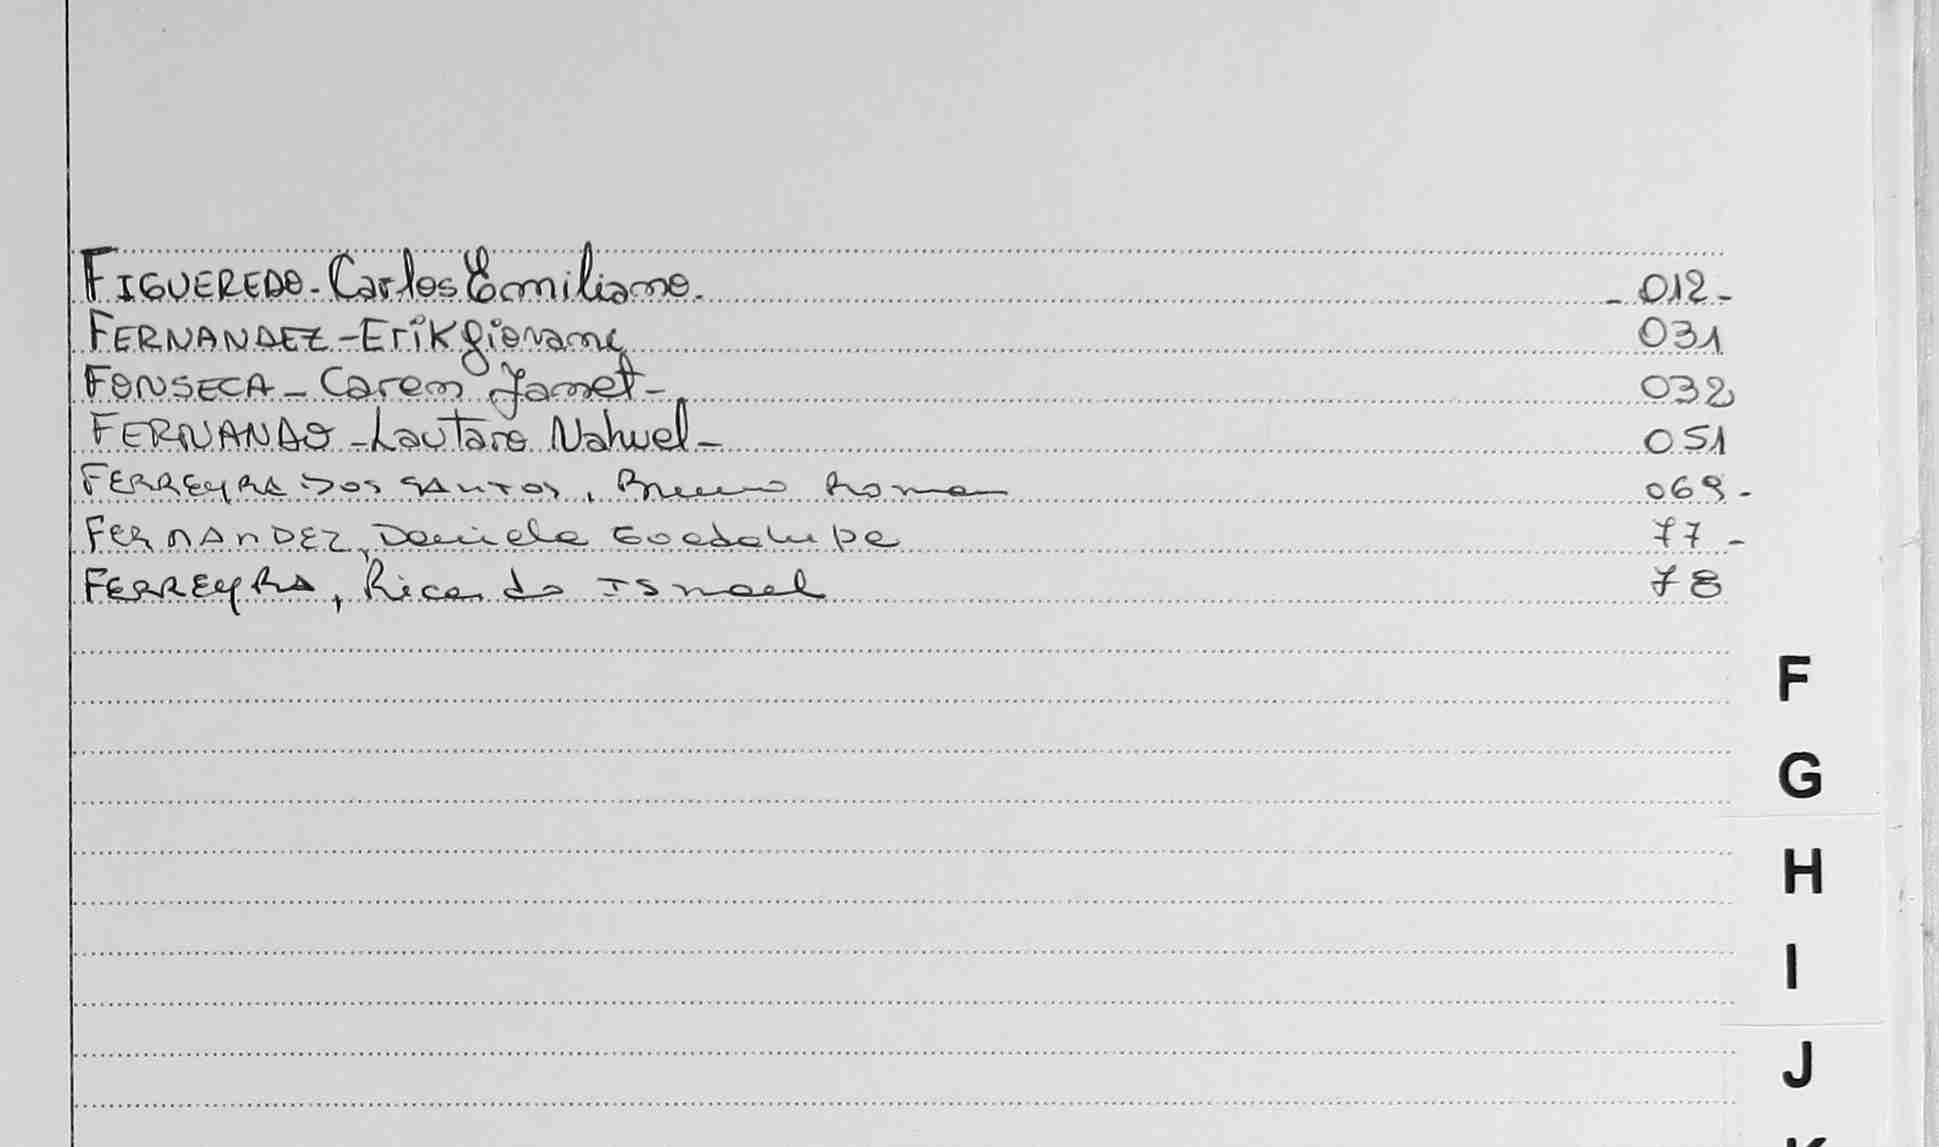 FIGUEREDO - Carlos Emiliano. - 012 -
FERNANDEZ - Erik Giovani 031
FONSECA - Caren Janet - 032
FERNANDO - Lautaro Nahuel - 051
FERREYRA DOS SANTOS, Bruno Roman 069 -
FERNANDEZ, Daniela Guadalupe 77 -
FERREYRA, Ricardo Ismael 78
F
G
H
I
J
K